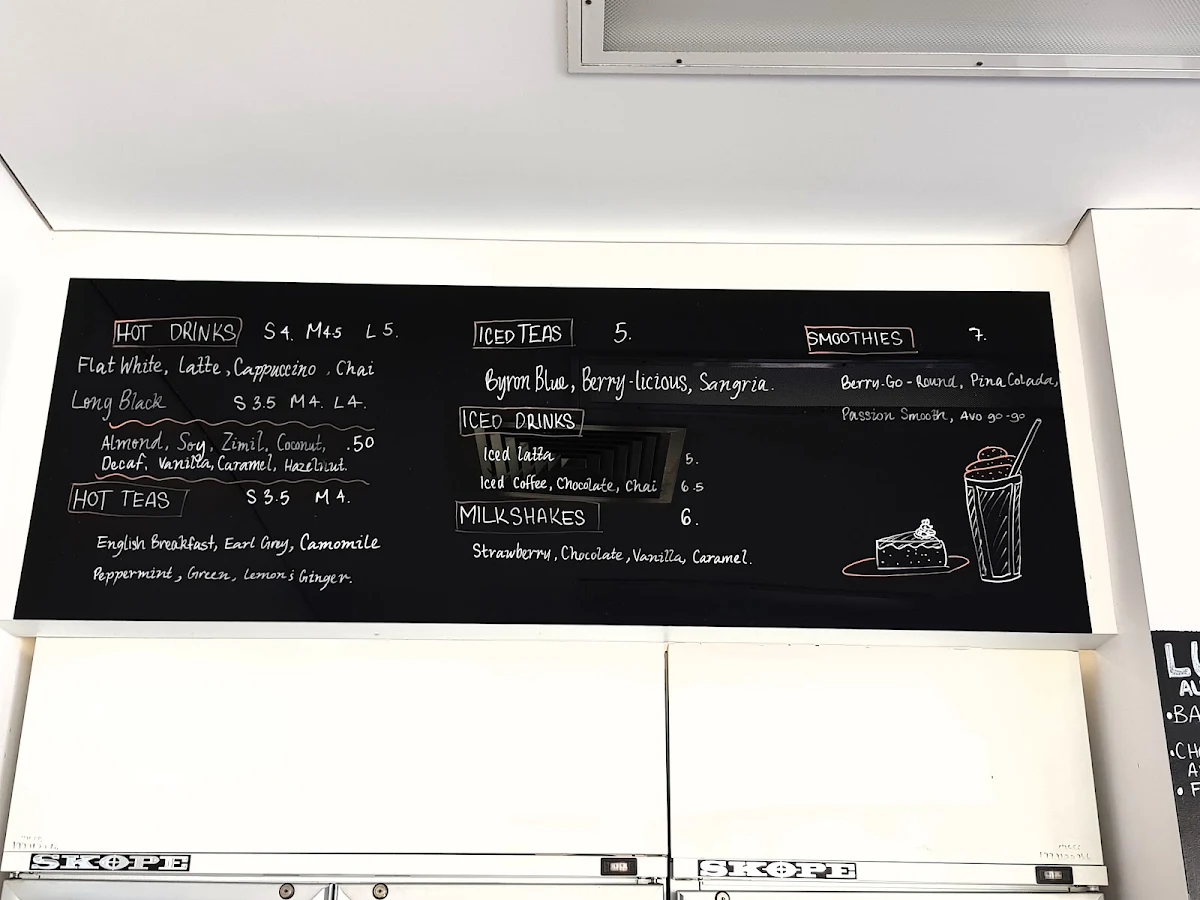 HOT DRINKS S 4. M 4.5 L 5.
Flat White, Latte, Cappuccino, Chai
Long Black S 3.5 M 4. L 4.
Almond, Soy, Zimil, Coconut, .50
Decaf, Vanilla, Caramel, Hazelnut.
HOT TEAS S 3.5 M 4.
English Breakfast, Earl Grey, Camomile
Peppermint, Green, Lemon & Ginger.
ICED TEAS 5.
Byron Blue, Berry-licious, Sangria.
ICED DRINKS
Iced latta 5.
Iced Coffee, Chocolate, Chai 6.5
MILKSHAKES 6.
Strawberry, Chocolate, Vanilla, Caramel.
SMOOTHIES 7.
Berry-Go-Round, Pina Colada,
Passion Smooth, Avo go-go
SKOPE
SKOPE